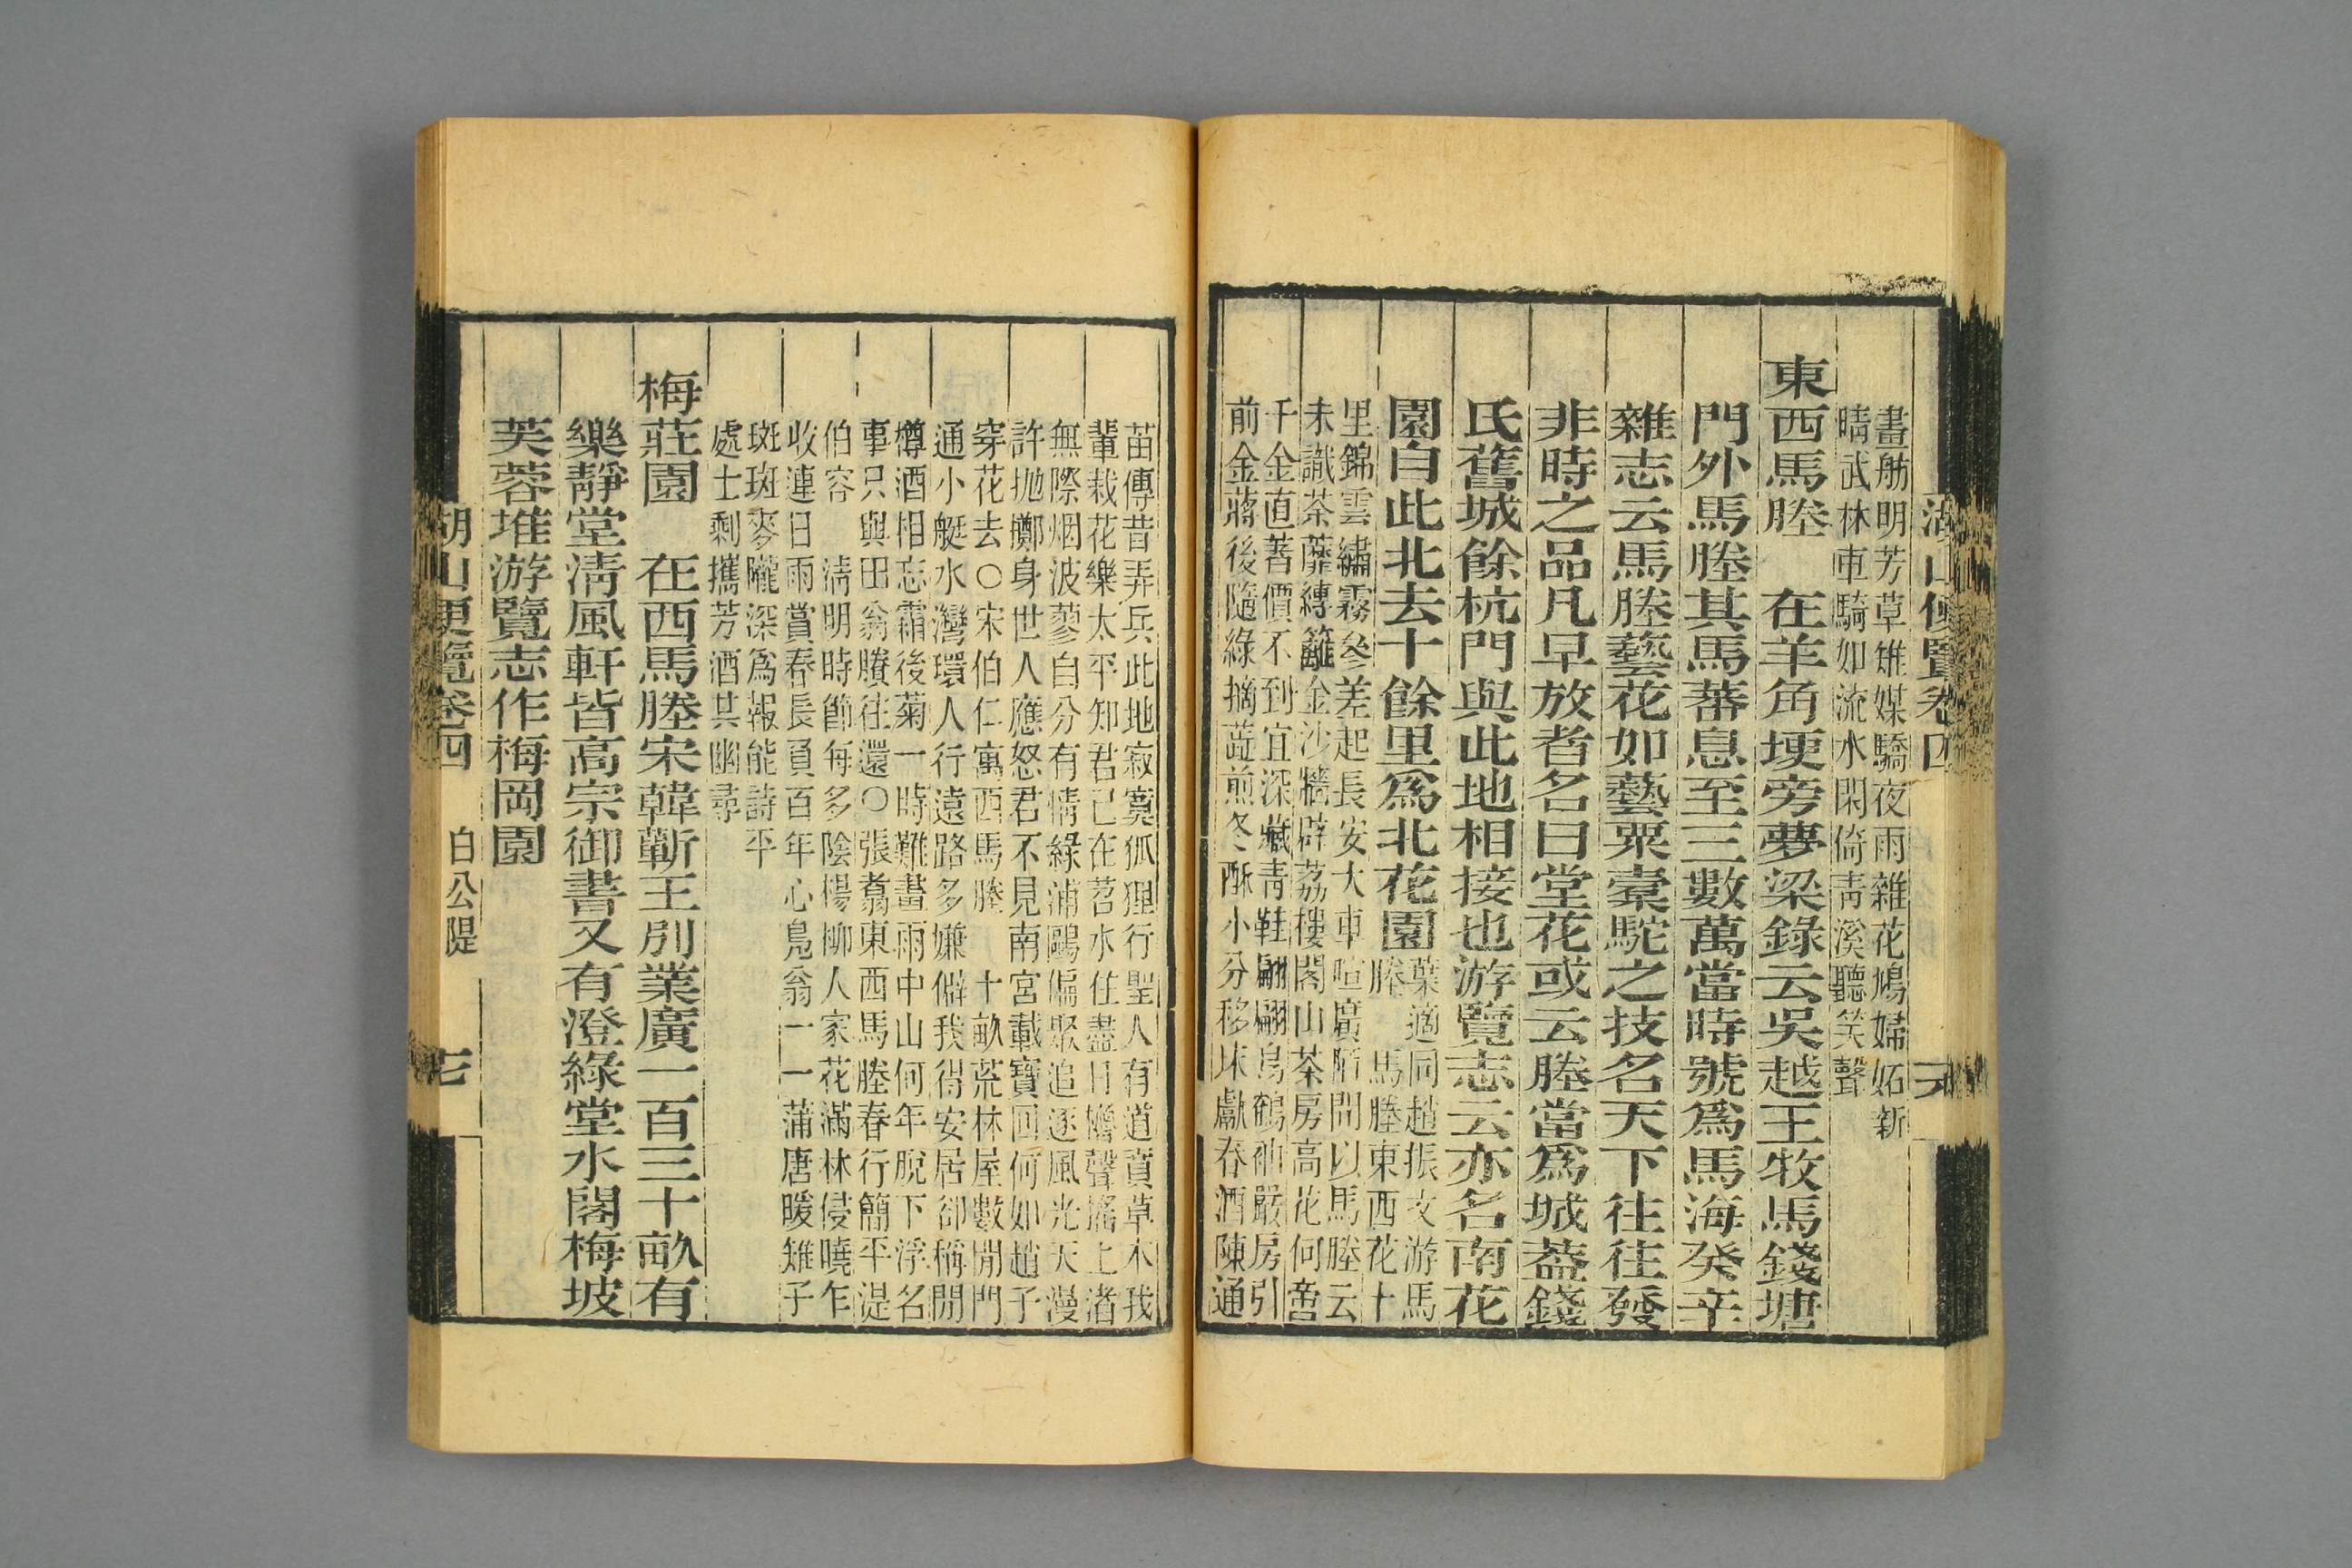 湖山便覽卷四
畫舫明芳草雉媒驕夜雨雜花鳩婦妬新
晴武林車騎如流水閑倚靑溪聽笑聲
東西馬塍　在羊角埂旁夢梁錄云吳越王牧馬錢塘
門外馬塍其馬蕃息至三數萬當時號爲馬海癸辛
雜志云馬塍藝花如藝粟橐駝之技名天下往往發
非時之品凡早放者名曰堂花或云塍當爲城葢錢
氏舊城餘杭門與此地相接也游覽志云亦名南花
園自此北去十餘里爲北花園
葉適同趙振文游馬
塍　馬塍東西花十
里錦雲繡霧參差起長安大車喧廣陌問以馬塍云
未識茶蘼縛籬金沙牆辟荔樓閣山茶房高花何啻
千金直著價不到宜深藏靑鞋翩翩烏鶴袖嚴房引
前金蔣後隨綠摘蔬煎冬酥小分移床獻春酒陳通
苗傅昔弄兵此地寂寞狐狸行聖人有道賁草木我
輩栽花樂太平知君已在苕水住盡日櫓聲搖上渚
無際烟波蓼自分有情綠浦鷗偏聚追逐風光天漫
許抛擲身世人應怒君不見南宮載寶回何如趙子
穿花去○宋伯仁寓西馬塍　十畝荒林屋數間門
通小艇水灣環人行遠路多嫌僻我得安居卻稱閒
樽酒相忘霜後菊一時難畫雨中山何年脫下浮名
事只與田翁賸往還○張翥東西馬塍春行簡平湜
伯容　淸明時節每多陰楊柳人家花滿林侵曉乍
收連日雨賞春長負百年心鳧翁一一蒲唐暖雉子
斑斑麥隴深爲報能詩平
處士剩攜芳酒其幽尋
梅莊園　在西馬塍宋韓蘄王別業廣一百三十畝有
樂靜堂淸風軒皆高宗御書又有澄綠堂水閣梅坡
芙蓉堆游覽志作梅岡園
湖山便覽卷四　白公隄